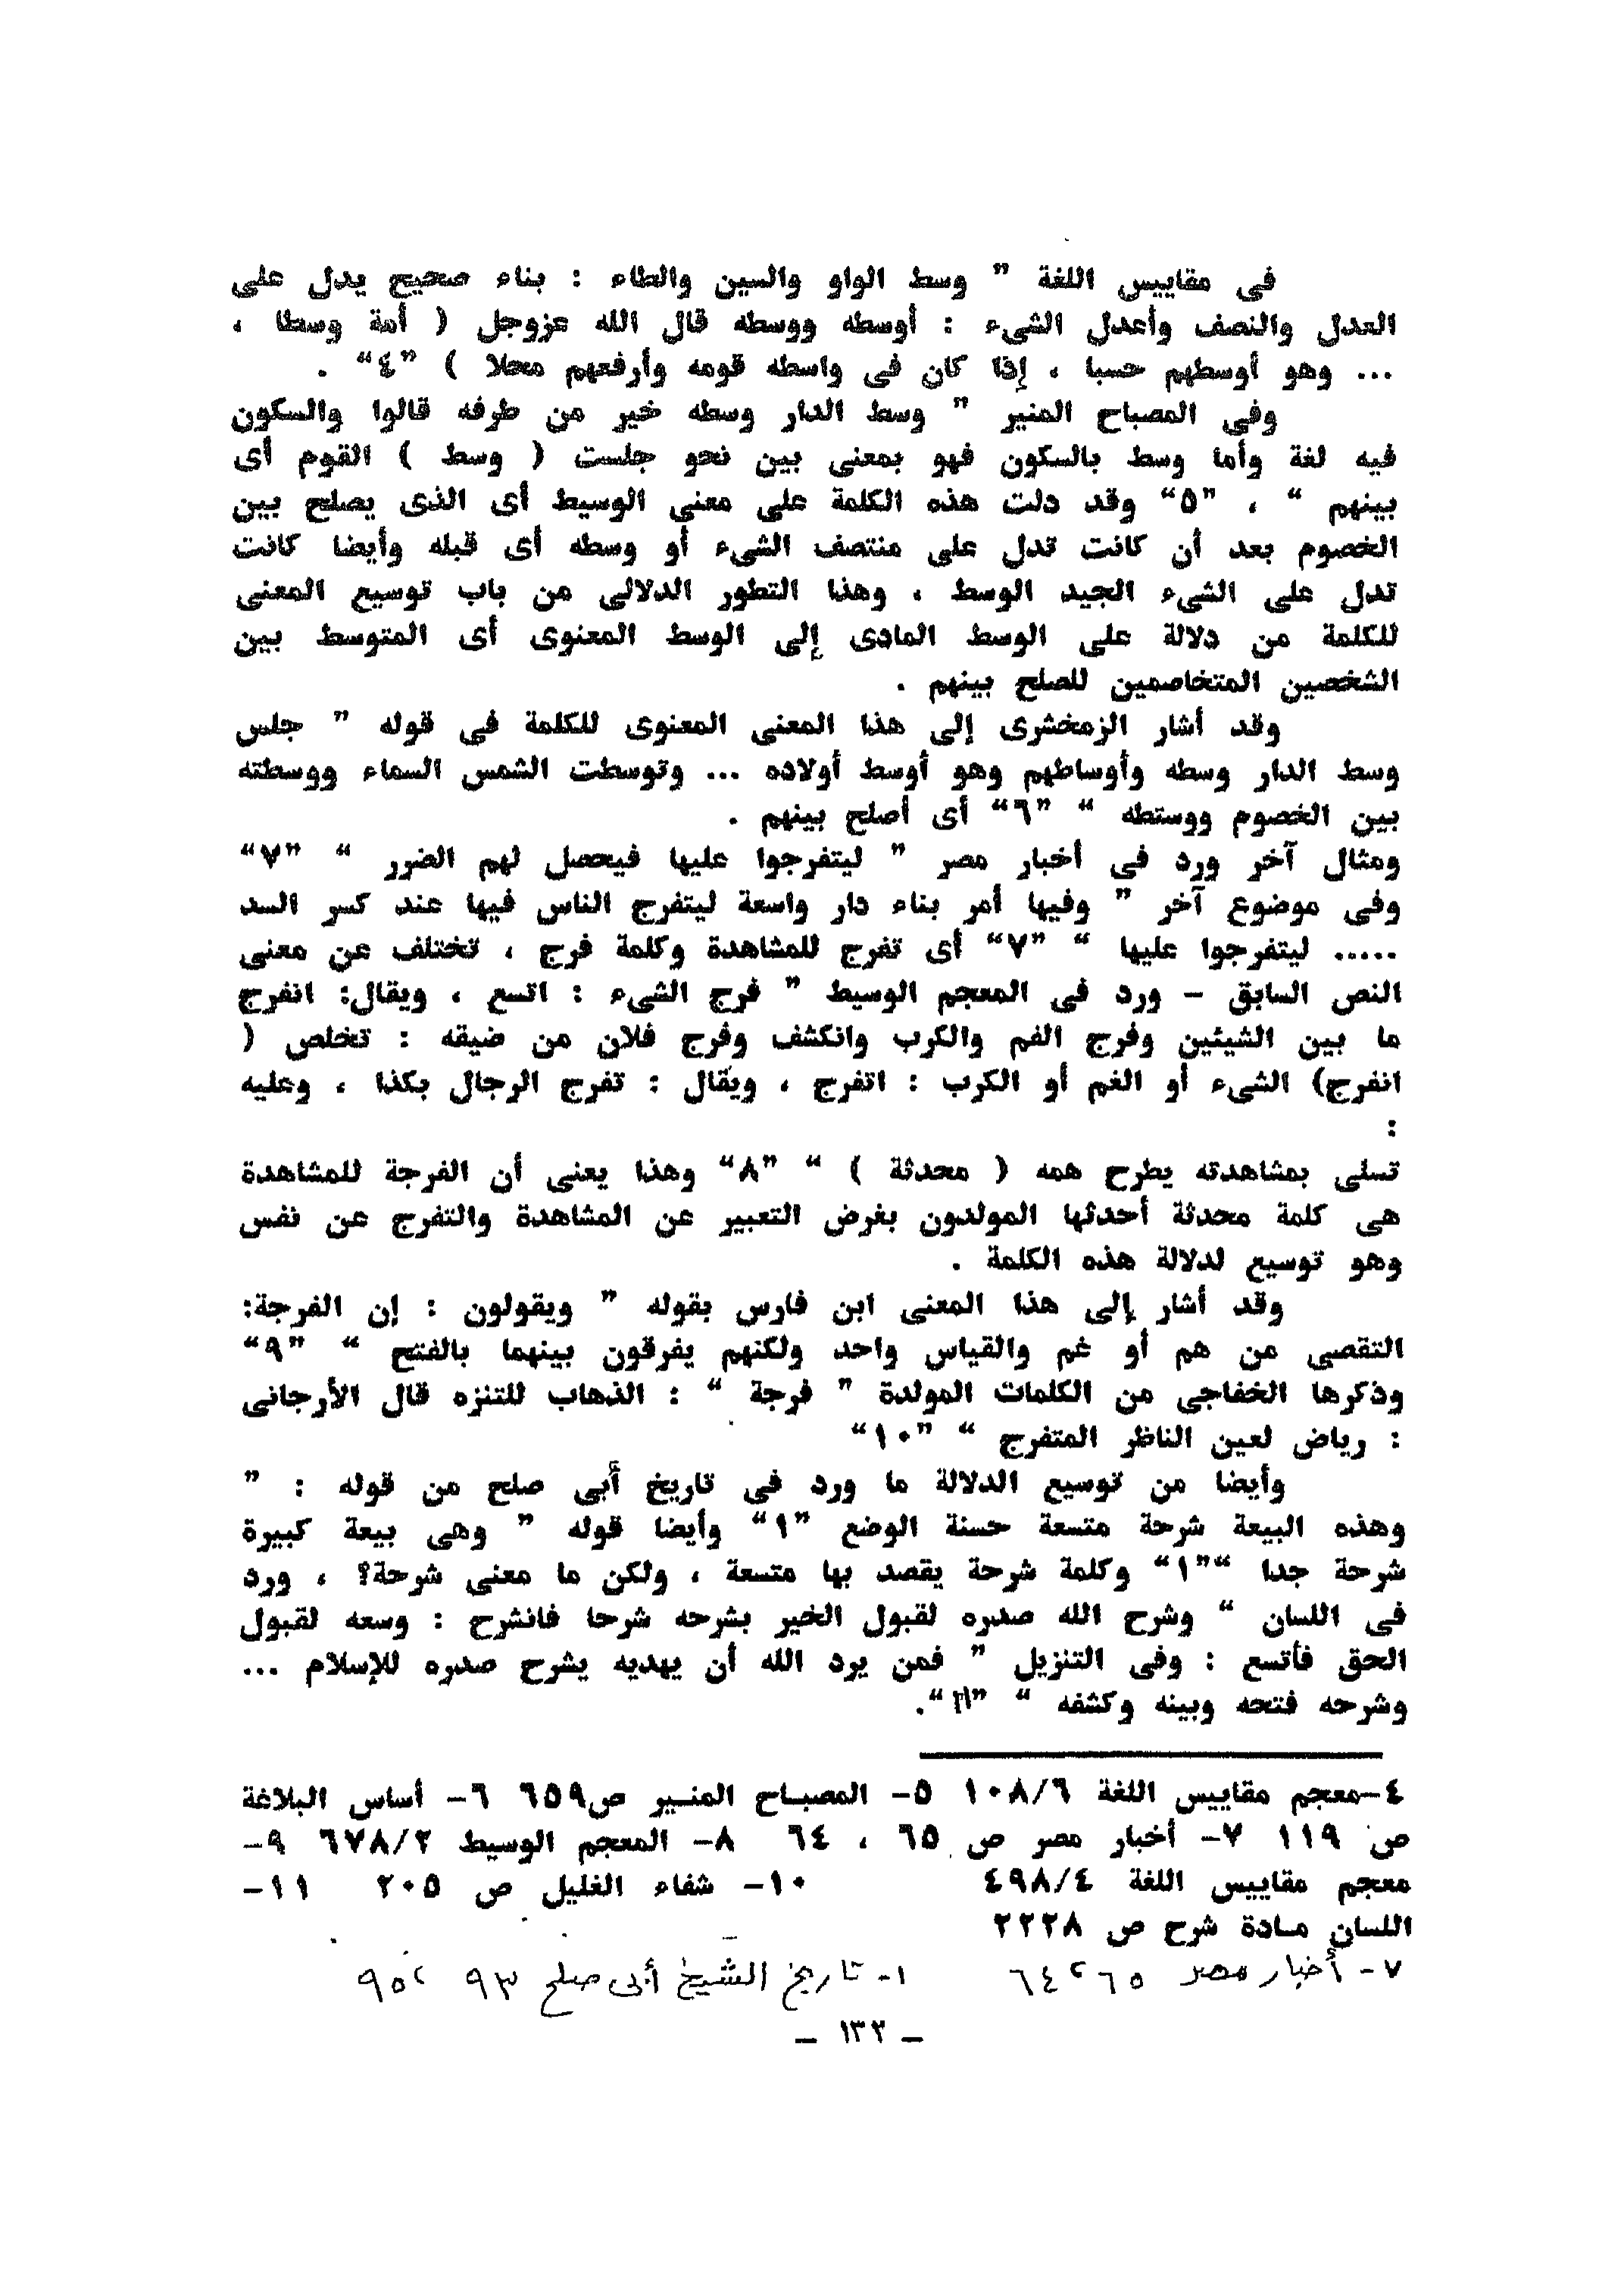 فى مقاييس اللغة " وسط الواو والسين والطاء : بناء صحيح يدل على
العدل والنصف وأعدل الشىء : أوسطه ووسطه قال الله عزوجل ( أمة وسطا ،
... وهو أوسطهم حسبا ، إذا كان فى واسطه قومه وأرفعهم محلا ) "٤" .
وفى المصباح المنير " وسط الدار وسطه خير من طرفه قالوا والسكون
فيه لغة وأما وسط بالسكون فهو بمعنى بين نحو جلست ( وسط ) القوم أى
بينهم " ، "٥" وقد دلت هذه الكلمة على معنى الوسيط أى الذى يصلح بين
الخصوم بعد أن كانت تدل على منتصف الشىء أو وسطه أى قبله وأيضا كانت
تدل على الشىء الجيد الوسط ، وهذا التطور الدلالى من باب توسيع المعنى
للكلمة من دلالة على الوسط المادى إلى الوسط المعنوى أى المتوسط بين
الشخصين المتخاصمين للصلح بينهم .
وقد أشار الزمخشرى إلى هذا المعنى المعنوى للكلمة فى قوله " جلس
وسط الدار وسطه وأوساطهم وهو أوسط أولاده ... وتوسطت الشمس السماء ووسطته
بين الخصوم ووستطه " "٦" أى أصلح بينهم .
ومثال آخر ورد فى أخبار مصر " ليتفرجوا عليها فيحصل لهم الضرر " "٧"
وفى موضوع آخر " وفيها أمر بناء دار واسعة ليتفرج الناس فيها عند كسر السد
..... ليتفرجوا عليها " "٧" أى تفرج للمشاهدة وكلمة فرج ، تختلف عن معنى
النص السابق – ورد فى المعجم الوسيط " فرج الشىء : اتسع ، ويقال: انفرج
ما بين الشيئين وفرج الفم والكرب وانكشف وفرج فلان من ضيقه : تخلص (
انفرج) الشىء أو الغم أو الكرب : اتفرج ، ويقال : تفرج الرجال بكذا ، وعليه
:
تسلى بمشاهدته يطرح همه ( محدثة ) " "٨" وهذا يعنى أن الفرجة للمشاهدة
هى كلمة محدثة أحدثها المولدون بغرض التعبير عن المشاهدة والتفرج عن نفس
وهو توسيع لدلالة هذه الكلمة .
وقد أشار إلى هذا المعنى ابن فارس بقوله " ويقولون : إن الفرجة:
التقصى من هم أو غم والقياس واحد ولكنهم يفرقون بينهما بالفتح " "٩"
وذكرها الخفاجى من الكلمات المولدة " فرجة " : الذهاب للتنزه قال الأرجانى
: رياض لعين الناظر المتفرج " "١٠"
وأيضا من توسيع الدلالة ما ورد فى تاريخ أبى صلح من قوله : "
وهذه البيعة شرحة متسعة حسنة الوضع "١" وأيضا قوله " وهى بيعة كبيرة
شرحة جدا ""١" وكلمة شرحة يقصد بها متسعة ، ولكن ما معنى شرحة؟ ، ورد
فى اللسان " وشرح الله صدره لقبول الخير بشرحه شرحا فانشرح : وسعه لقبول
الحق فأتسع : وفى التنزيل " فمن يرد الله أن يهديه يشرح صدره للإسلام ...
وشرحه فتحه وبينه وكشفه " "١١".
٤-معجم مقاييس اللغة ١٠٨/٦ ٥- المصباح المنير ص٦٥٩ ٦- أساس البلاغة
ص ١١٩ ٧- أخبار مصر ص ٦٥ ، ٦٤ ٨- المعجم الوسيط ٦٧٨/٢ ٩-
معجم مقاييس اللغة ٤٩٨/٤ ١٠- شفاء الغليل ص ٢٠٥ ١١-
اللسان مادة شرح ص ٢٢٢٨
٧- أخبار مصر ٦٥ ، ٦٤ ١- تاريخ الشيخ أبى صلح ٩٣ ، ٩٥
– ١٣٢ –